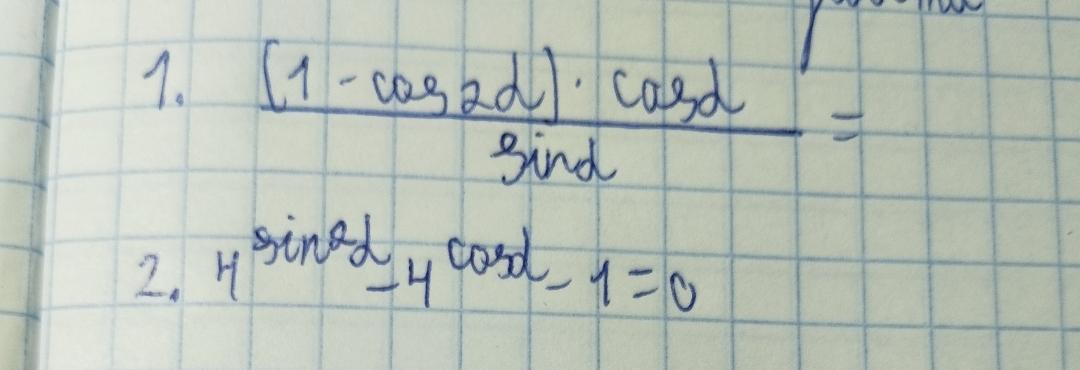 1. (1 - cos2α) · cosα
sinα =
2. 4^sin2α - 4^cosα - 1 = 0